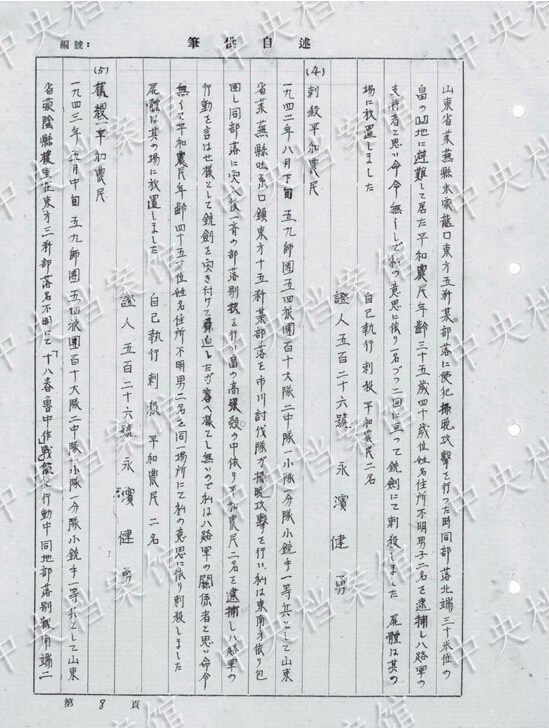 編號：
述自供筆
山東省萊蕪縣 口東方五秆某部落に侵犯 晩攻擊を行った時同部落北端三十米位の
畠の凹地に避難して居た平和農民年齢三十五歳四十歳位姓名住所不明男子二名を逮捕し八路軍の
支持者と思い命令無くして私の意思に依り一名づつ二回に亘って銃劍にて刺殺しました 屍體は其の
場に放置しました
自己執行刺殺 平和農民二名
證人 五百二十六號 永濱健勇
(4) 刺殺平和農民
一九四二年八月下旬五九師團五四旅團百十大隊二中隊一小隊一分隊小銃手一等兵として山東
省萊蕪縣吐糸口鎮東方十五秆某部落を市川討伐隊が 晩攻擊を行い私は東南方依り包
囲し同部落に突入後一斉の部落剔抉を行い畠の高 の中依り平和農民二名を逮捕し八路軍の
行動を言は世様として銃劍を突き付けて脅迫したが答へ様とし無いので私は八路軍の關係者と思い命令
無くして平和農民年齢四十五 位姓名住所不明男二名を同場所にて私の意思に依り刺殺しました
屍體は其の場に放置しました
自己執行刺殺 平和農民 二名
證人 五百二十六號 永濱健勇
(5) 平和農民
一九四三年 月中旬五九師團五四旅團百十大隊二中隊一小隊一分隊小銃手一等兵として山東
省蒙陰縣 東方三秆部落名不明にて「十八春魯中作戰」 行動中同地部落剔抉南端二
第 8 頁
中央档案馆